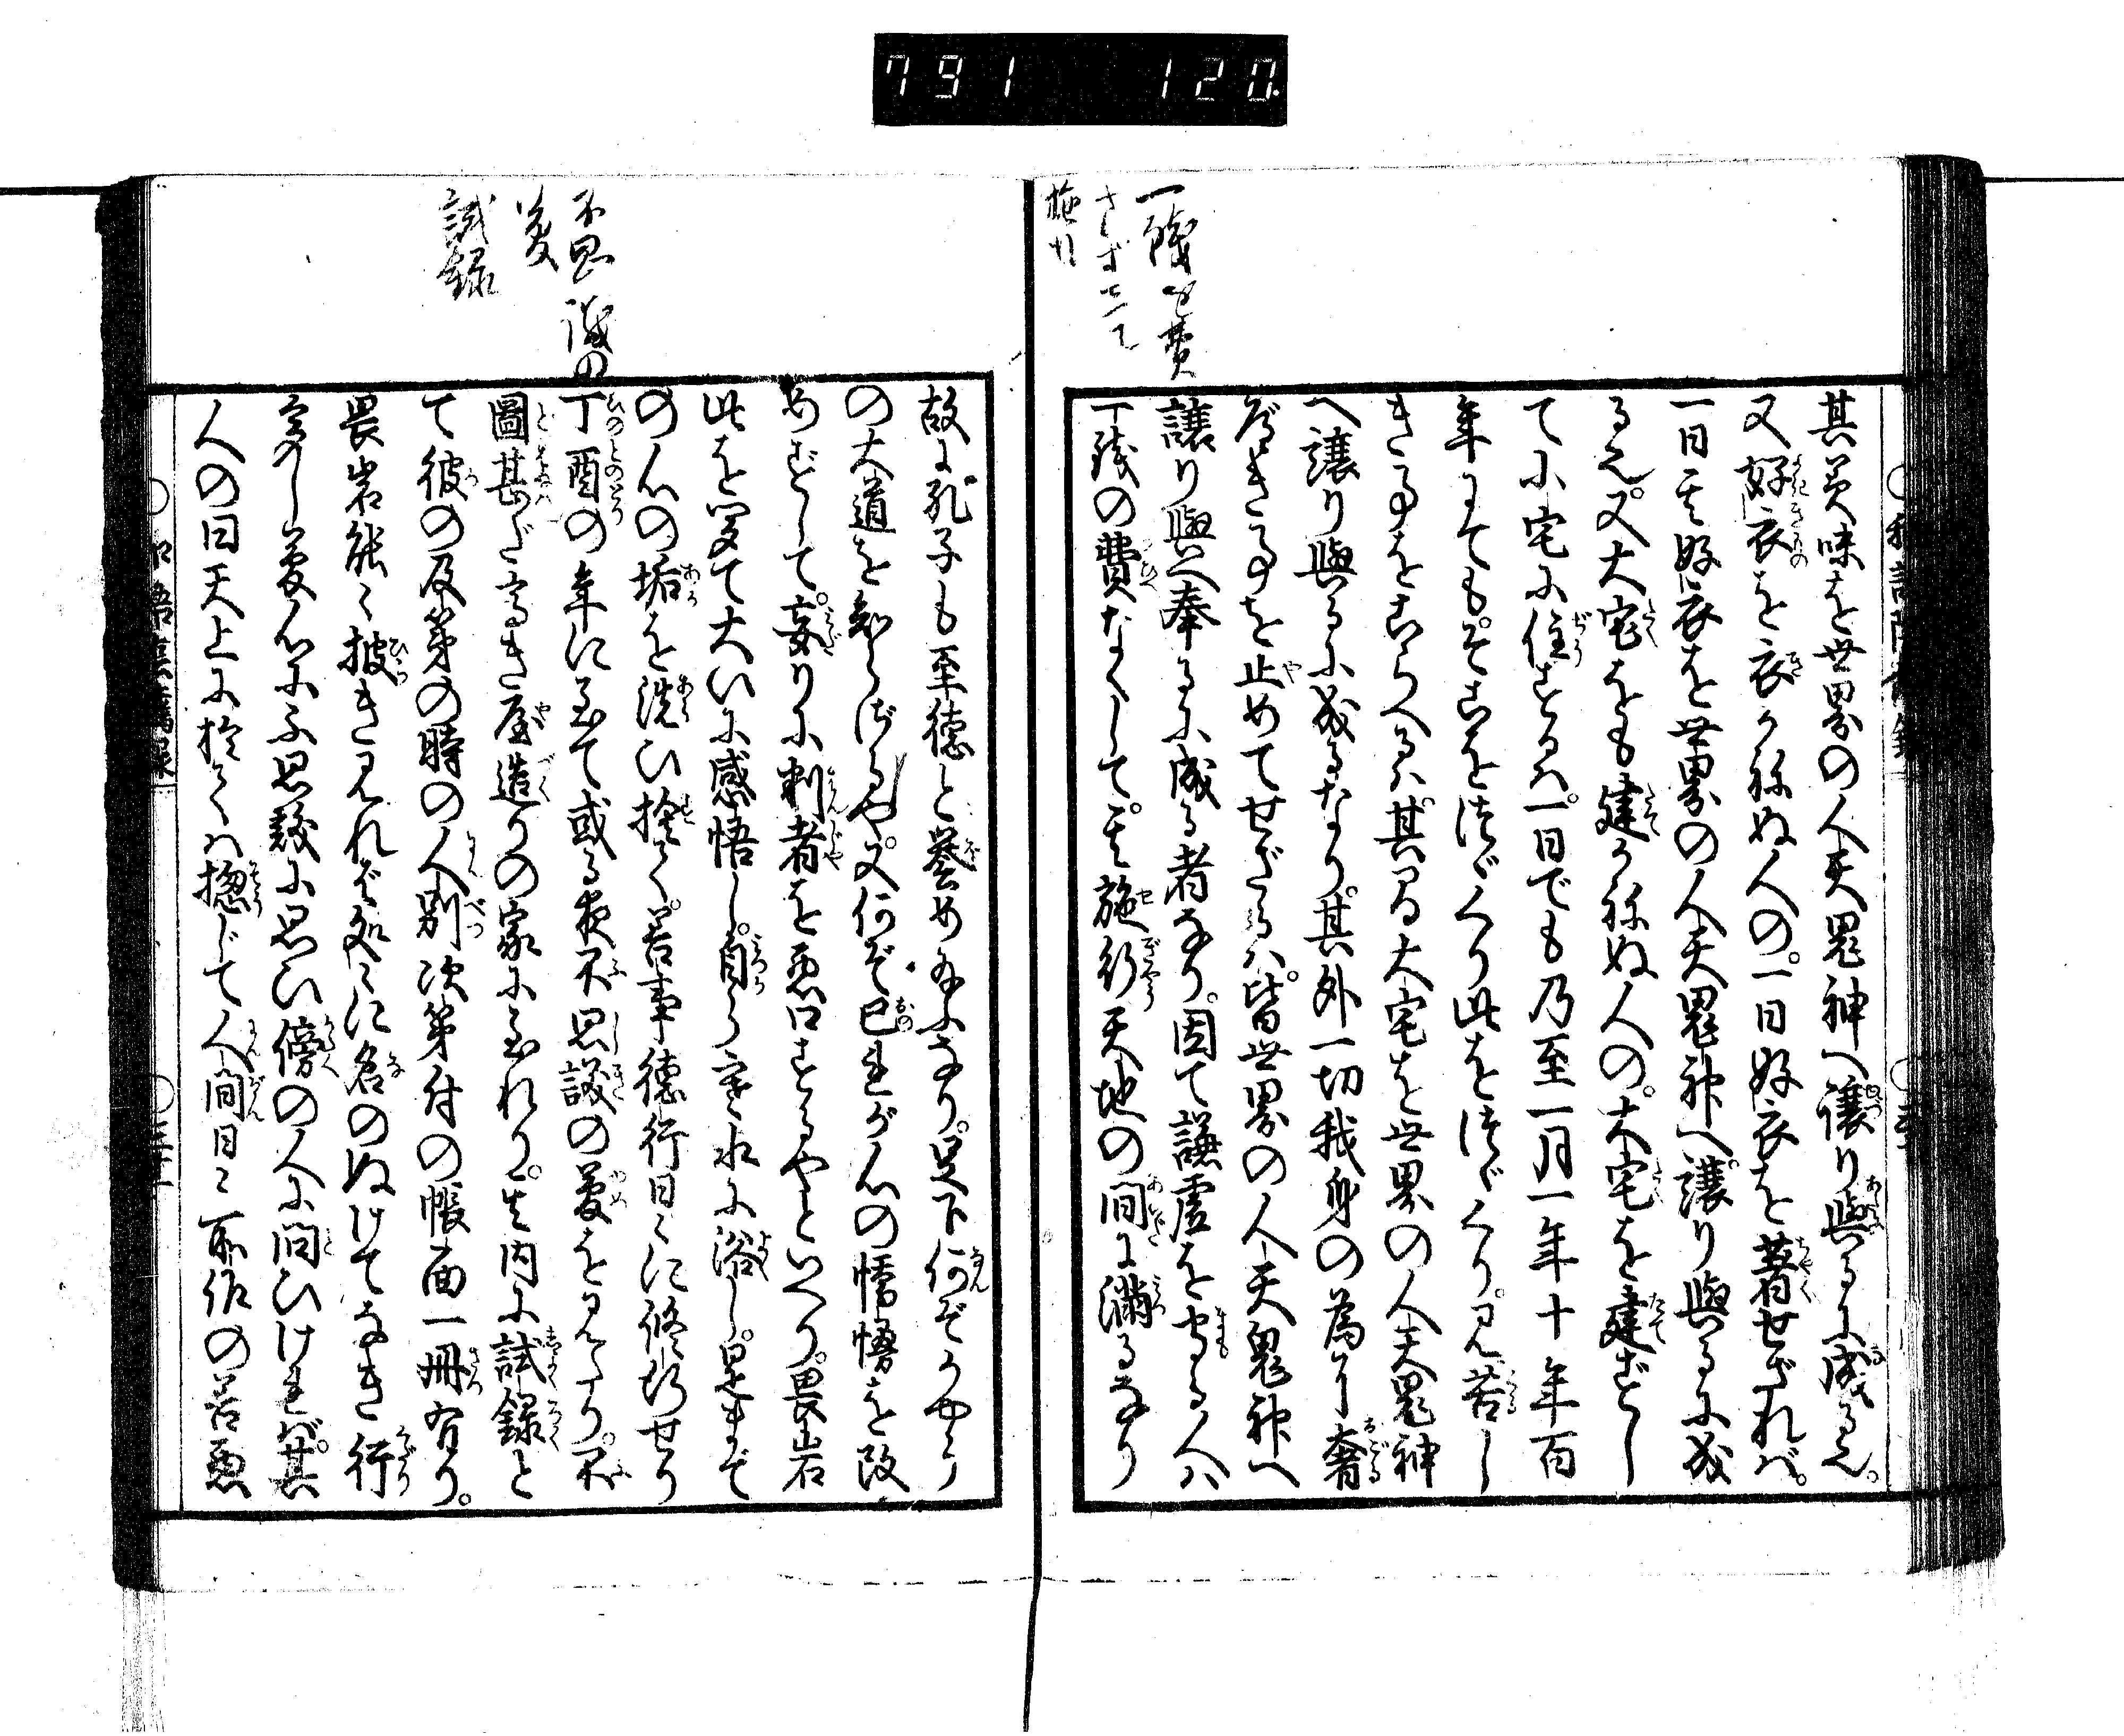 791 120
一銭を費
さずして
施行
其美味を世界の人天鬼神へ譲り與るに成るえ。
又好衣を衣かねぬ人の。一日好衣を著せざれば。
一日其好衣を世界の人天鬼神へ譲り與るに成
るえ。又大宅をも建かねぬ人の。大宅を建ずし
て小宅に住するハ。一日でも乃至一月一年十年百
年にても。そこを徃がくり此を徃がくり。見苦し
きる事をこらへるハ。其る大宅を世界の人天鬼神
へ譲り與るに成るなり。其外一切我身の為に奢
べきる事を止めてせざるハ。皆世界の人天鬼神へ
譲り與へ奉るに成る者なり。因て謙虚を守る人ハ
一銭の費なくして。其施行天地の間に満るなり
不思議の
夢
試録
故に孔子も至徳と誉め玉ふなり。足下何ぞかやう
の大道を知らざるや。又何ぞ己まが心の憍慢を改
めずして。妄りに判者を悪口するやといへり。畏岩
此を聞て大いに感悟し。自ら寒水に浴し。是まで
の心の垢を洗ひ捨て。善事徳行日々に修行せり
丁酉の年に至て或る夜不思議の夢を見たり。不
圖甚だ高き屋造りの家に至れり。其内に試録と
て彼の及第の時の人別次第付の帳面一冊有り。
畏岩能く披き見れば処々に名のぬけてなき行
多し夢心に不思議に思ひ傍の人に問ひければ。其
人の曰天上に於てハ惣じて人間日々所作の善悪